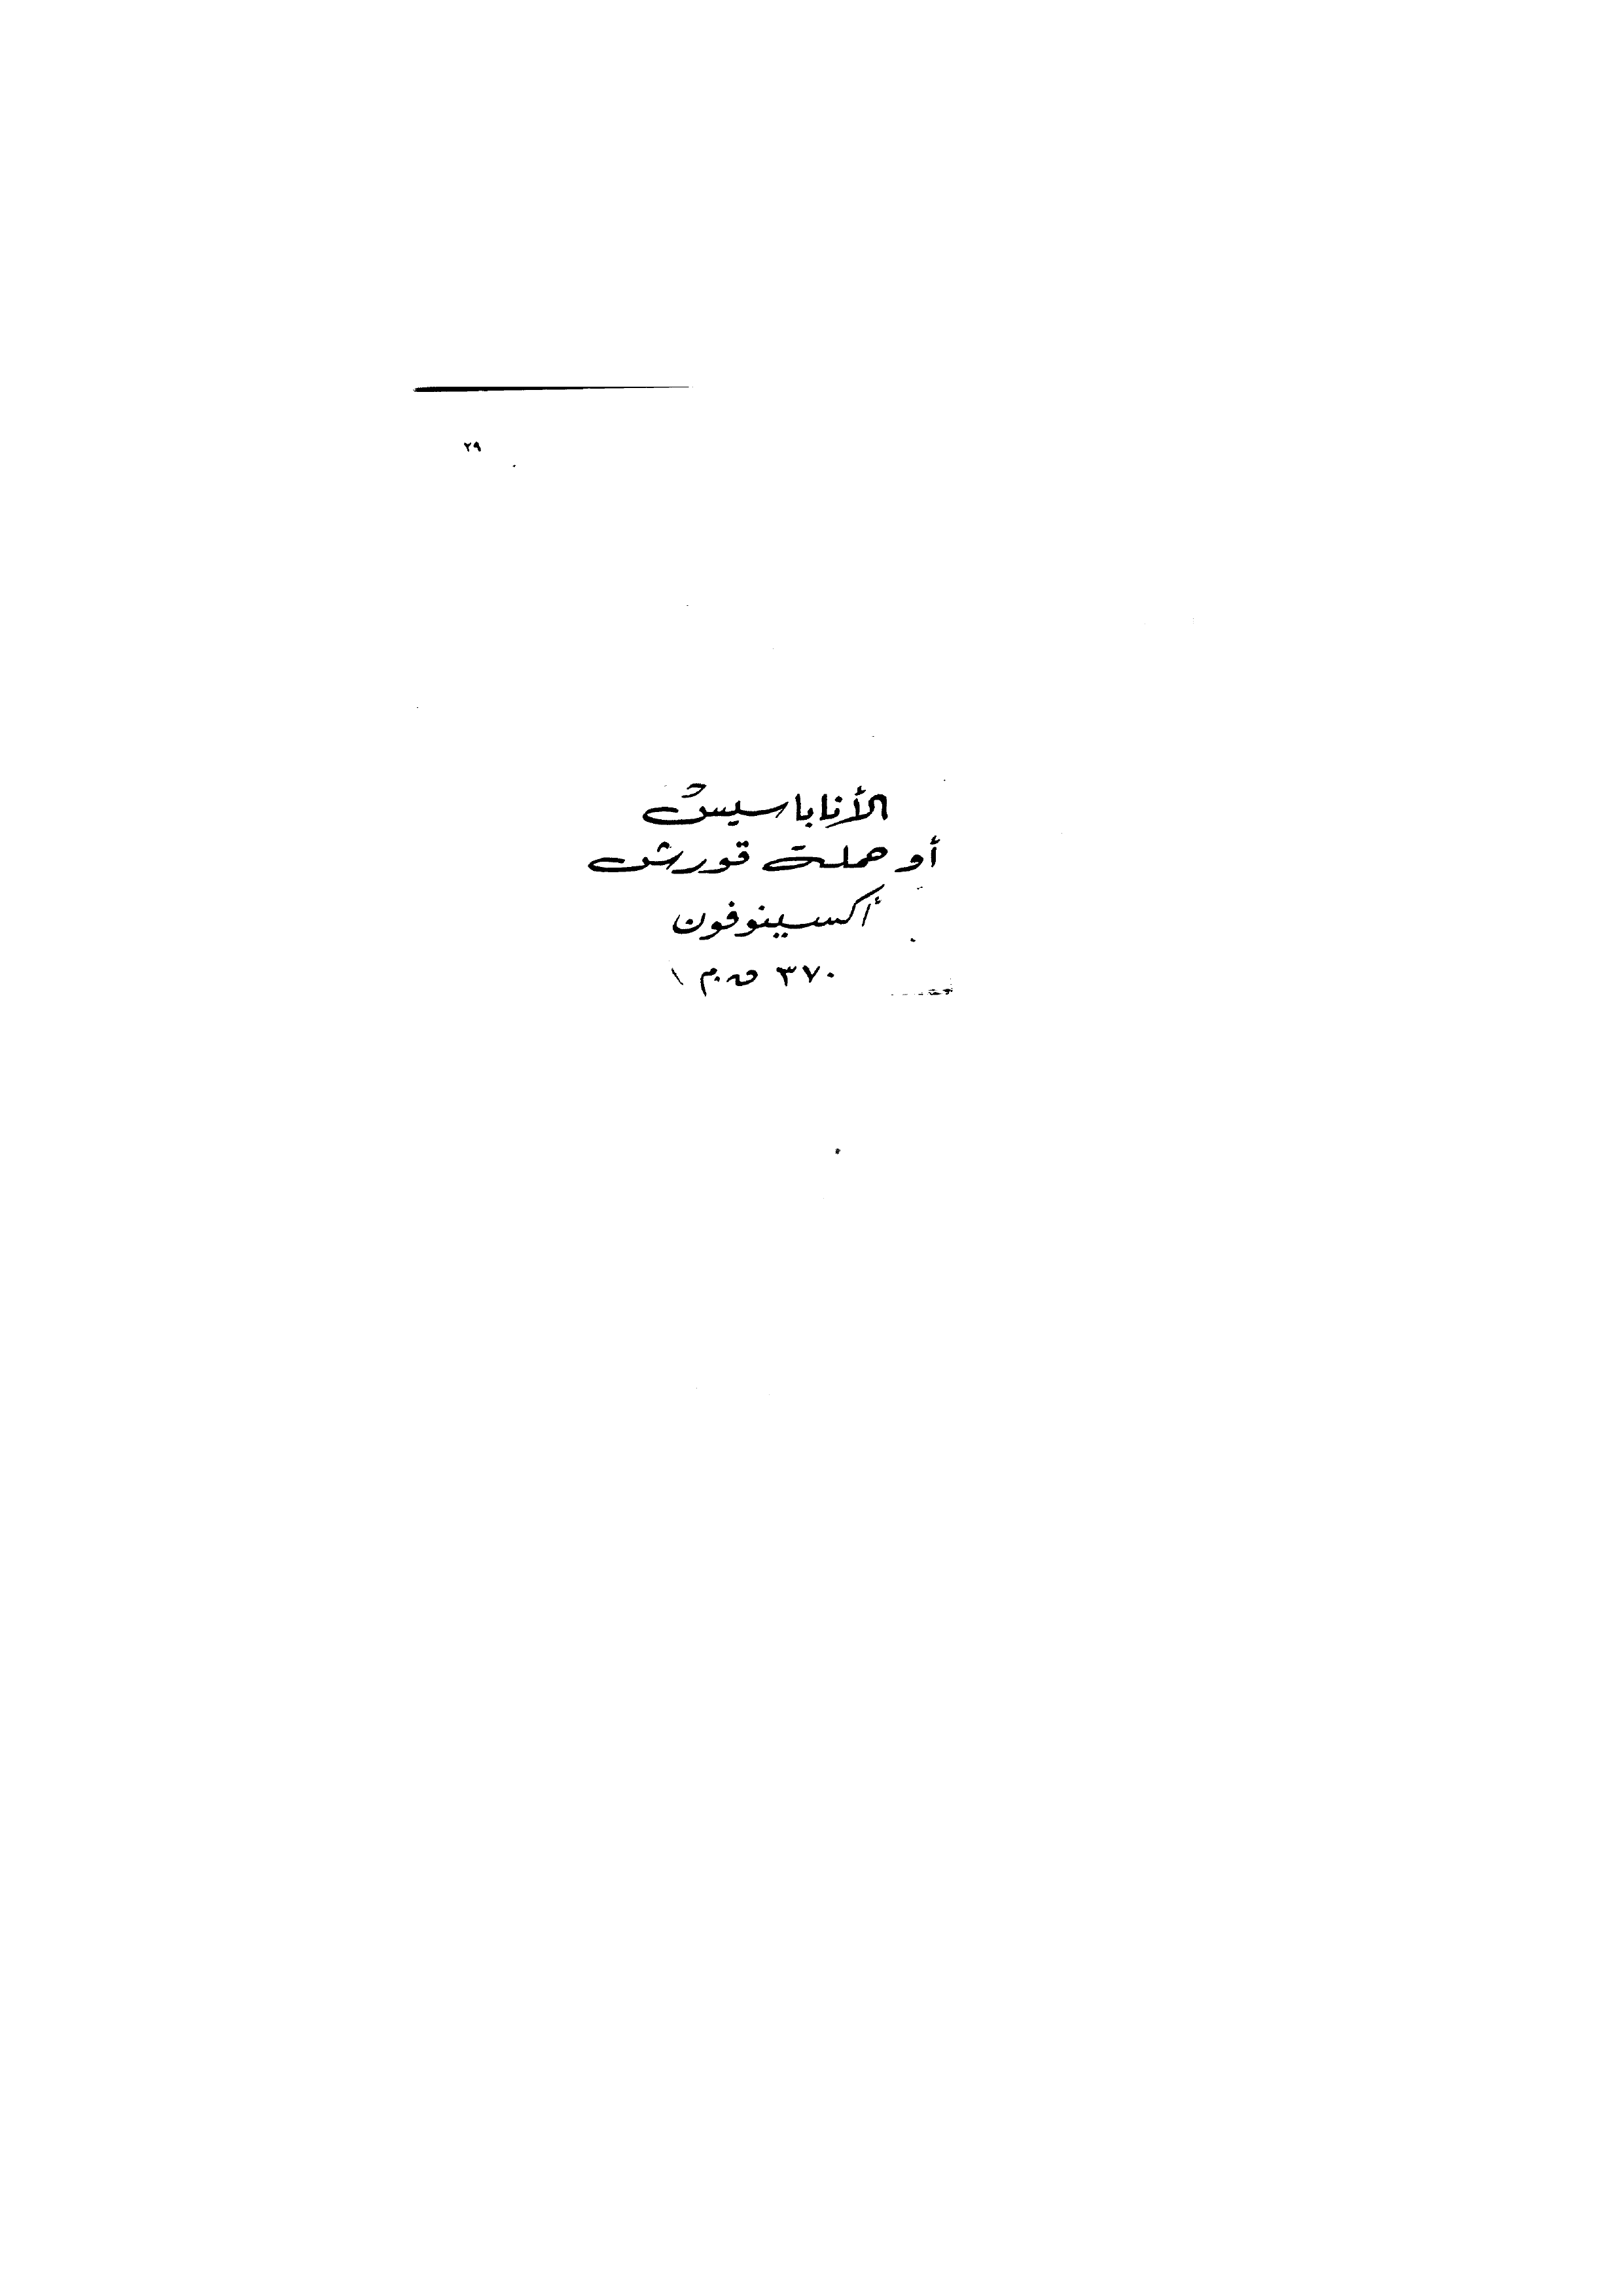 ٢٩
الأناباسيس
أو حملة قورش
أكسينوفون
٣٧٠ ق.م